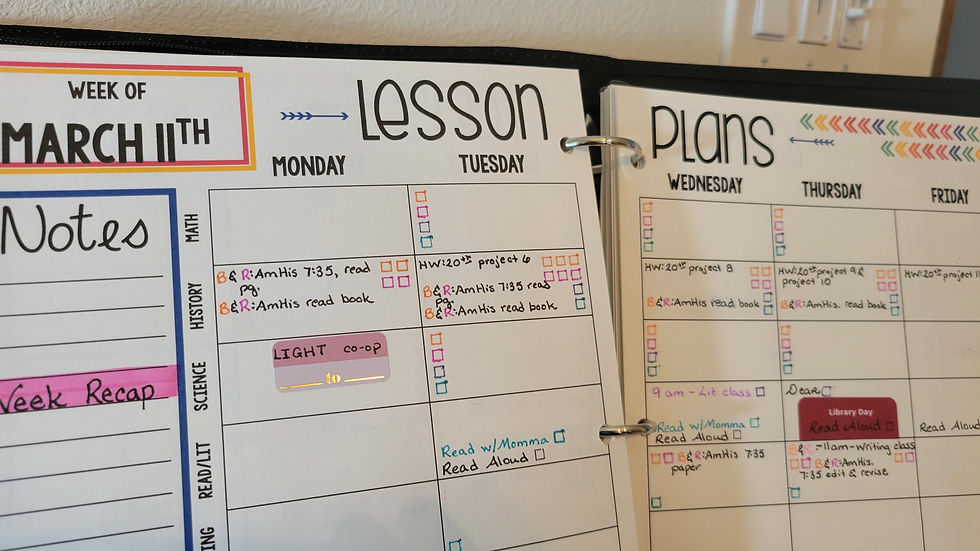 WEEK OF
MARCH 11TH
Lesson
Plans
MONDAY
TUESDAY
WEDNESDAY
THURSDAY
FRIDAY
Notes
Week Recap
MATH
HISTORY
B&R:AmHis 7:35, read
pg.
B&R:AmHis read book
HW:20th project 6
B&R:AmHis 7:35 read
pg.
B&R:AmHis read book
HW:20th project 8
B&R:AmHis read book
HW:20th project 9 &
project 10
B&R:AmHis. read book
HW:20th project 11
SCIENCE
LIGHT co-op
to
READ/LIT
Read w/Momma
Read Aloud
9 am - Lit class
Read w/Momma
Read Aloud
Dear
Library Day
Read Aloud
Read Aloud
ING
B&R:AmHis 7:35
paper
B&R:-11am-Writing class
B&R:AmHis.
7:35 edit & revise